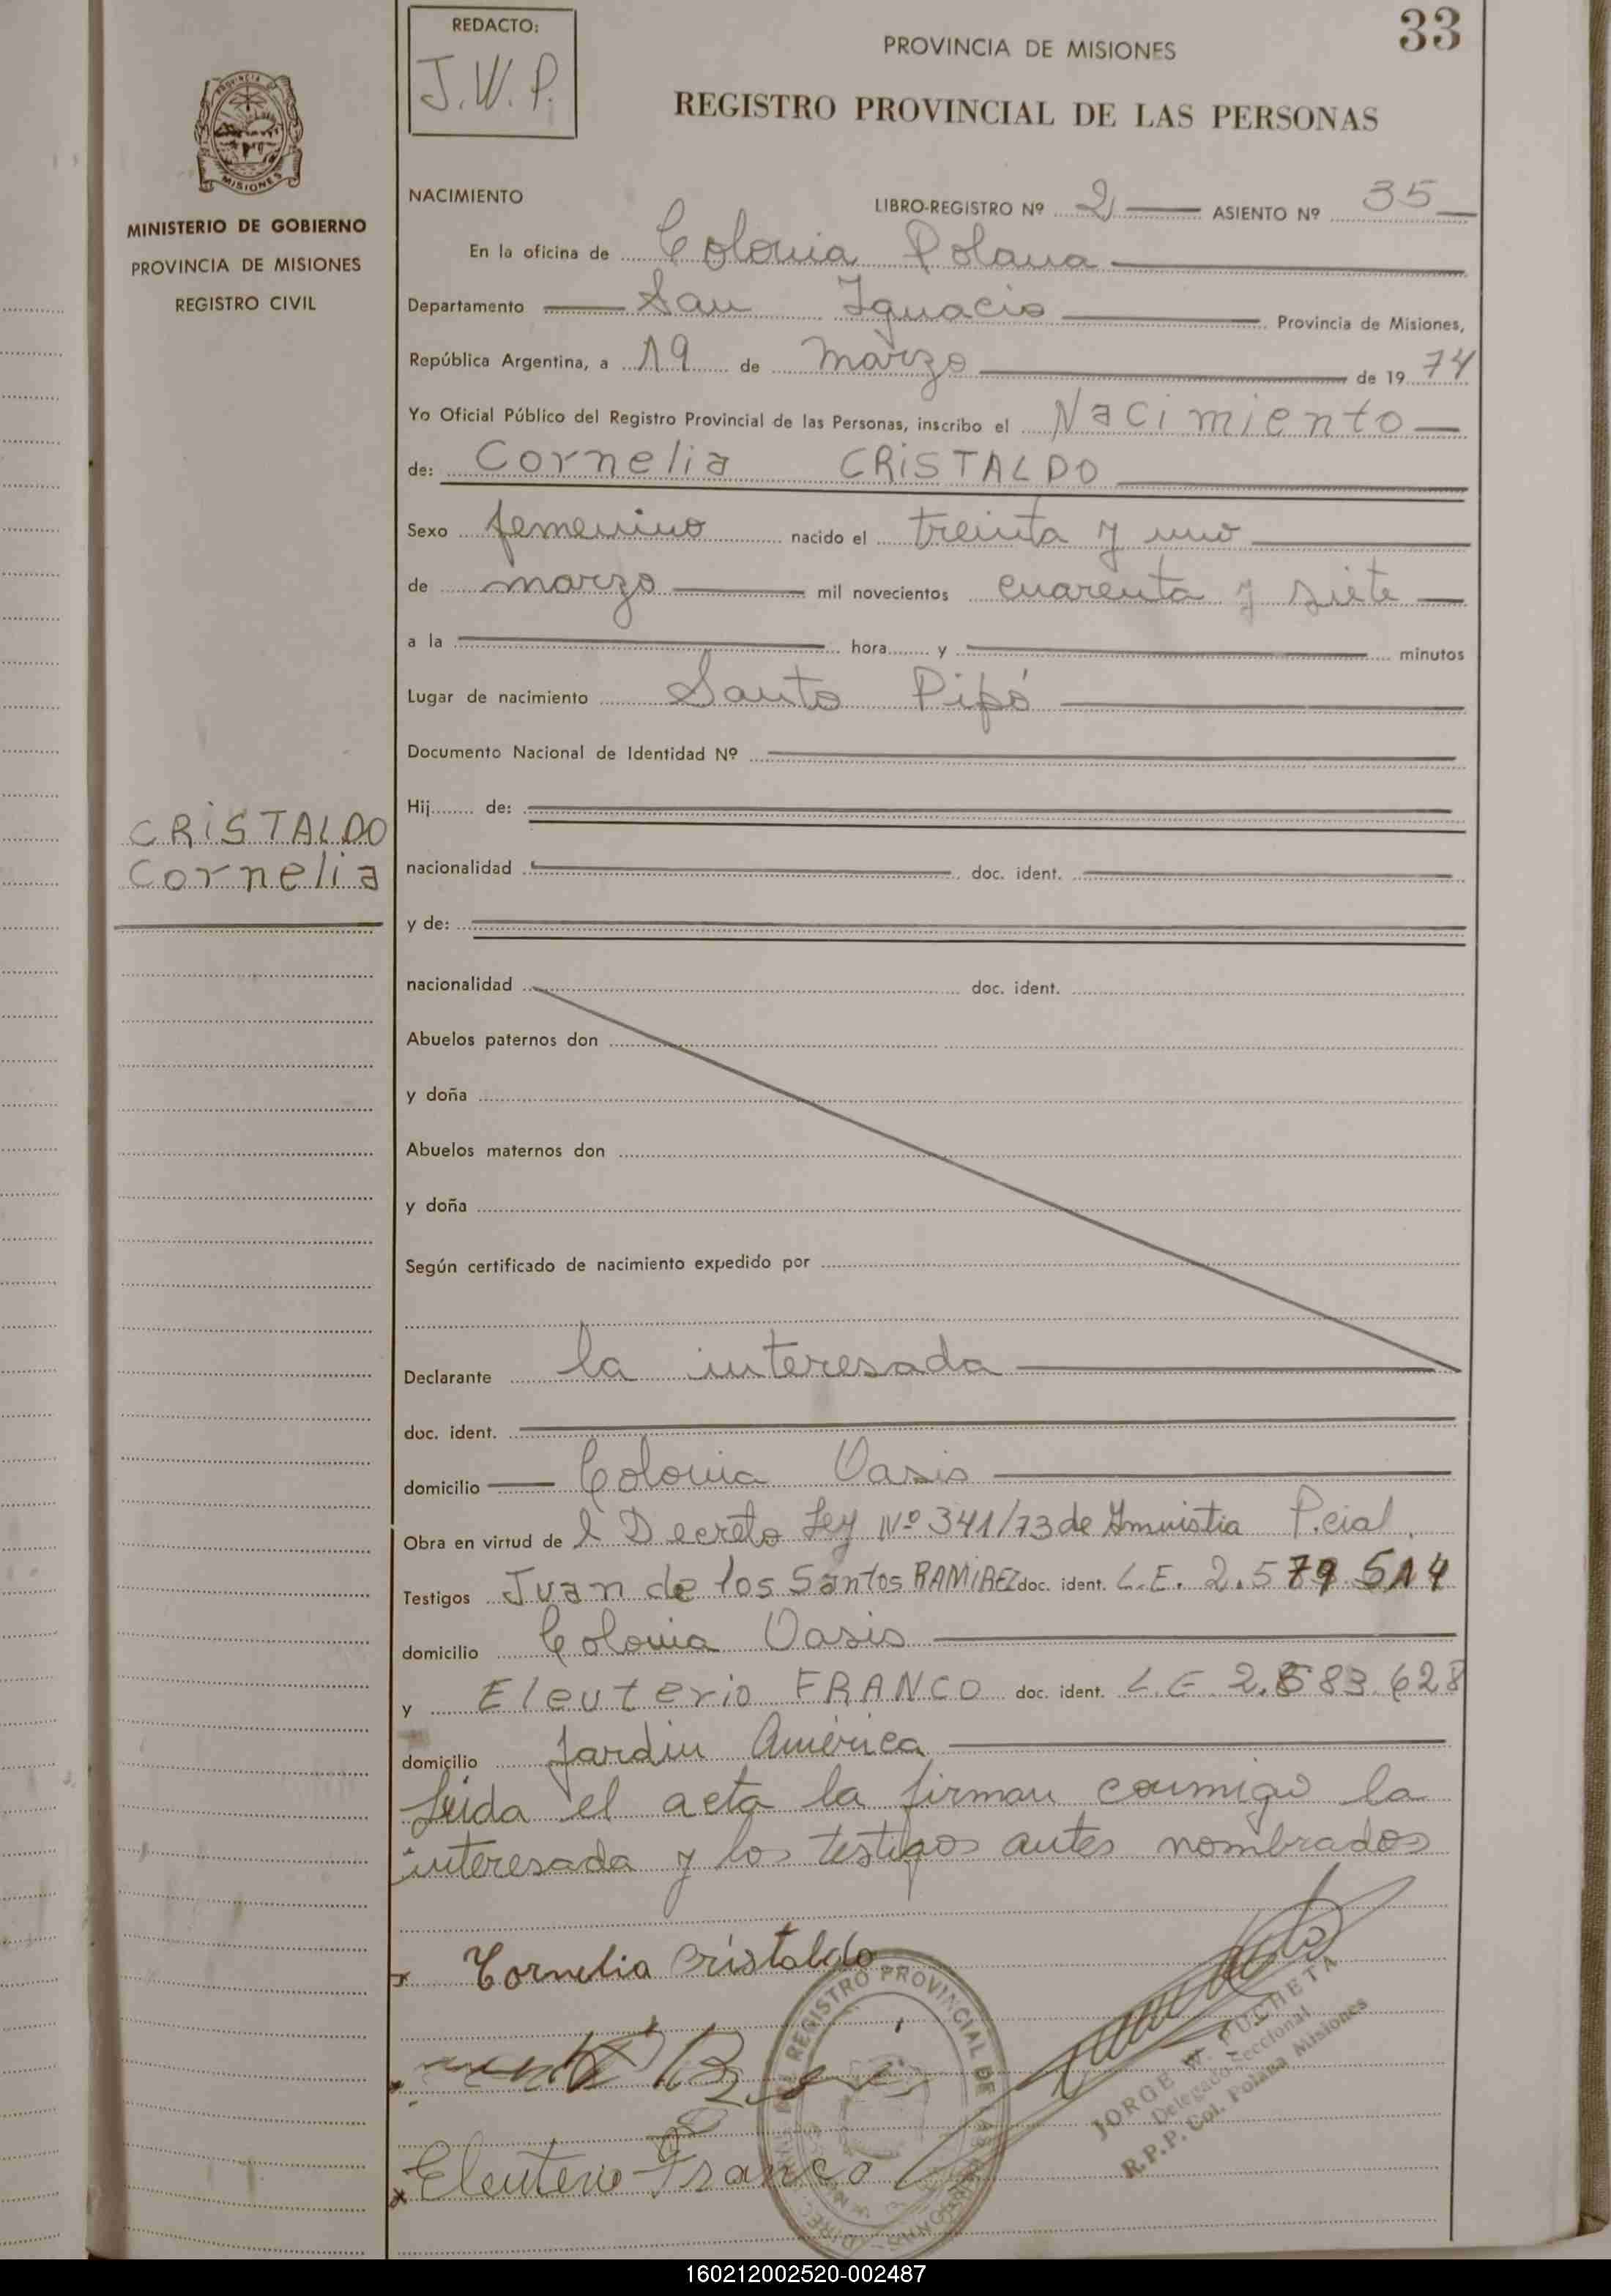 33
REDACTO:
J.W.P.
PROVINCIA DE MISIONES
REGISTRO PROVINCIAL DE LAS PERSONAS
PROVINCIA
MISIONES
MINISTERIO DE GOBIERNO
PROVINCIA DE MISIONES
REGISTRO CIVIL
NACIMIENTO
LIBRO-REGISTRO Nº 2 ASIENTO Nº 35
En la oficina de Colonia Polana
Departamento San Ignacio Provincia de Misiones,
República Argentina, a 19 de marzo de 19 74
Yo Oficial Público del Registro Provincial de las Personas, inscribo el Nacimiento
de: Cornelia CRISTALDO
Sexo femenino nacido el treinta y uno
de marzo mil novecientos cuarenta y siete
a la hora y minutos
Lugar de nacimiento Santo Pipó
Documento Nacional de Identidad Nº
CRISTALDO
Cornelia
Hij de:
nacionalidad doc. ident.
y de:
nacionalidad doc. ident.
Abuelos paternos don
y doña
Abuelos maternos don
y doña
Según certificado de nacimiento expedido por
Declarante la interesada
doc. ident.
domicilio Colonia Oasis
Obra en virtud de l Decreto Ley Nº 341/73 de Amnistia P.cial.
Testigos Juan de los Santos RAMIREZ doc. ident. L.E. 2.579 514
domicilio Colonia Oasis
y Eleuterio FRANCO doc. ident. L.E 2.583.628
domicilio Jardin América
Leida el acta la firman conmigo la
interesada y los testigos antes nombrados
x Cornelia Cristaldo
REGISTRO PROVINCIAL DE LAS PERSONAS
JORGE W. PUCHETA
Delegado Seccional
R.P.P. Col. Polana Misiones
x Eleuterio Franco
160212002520-002487